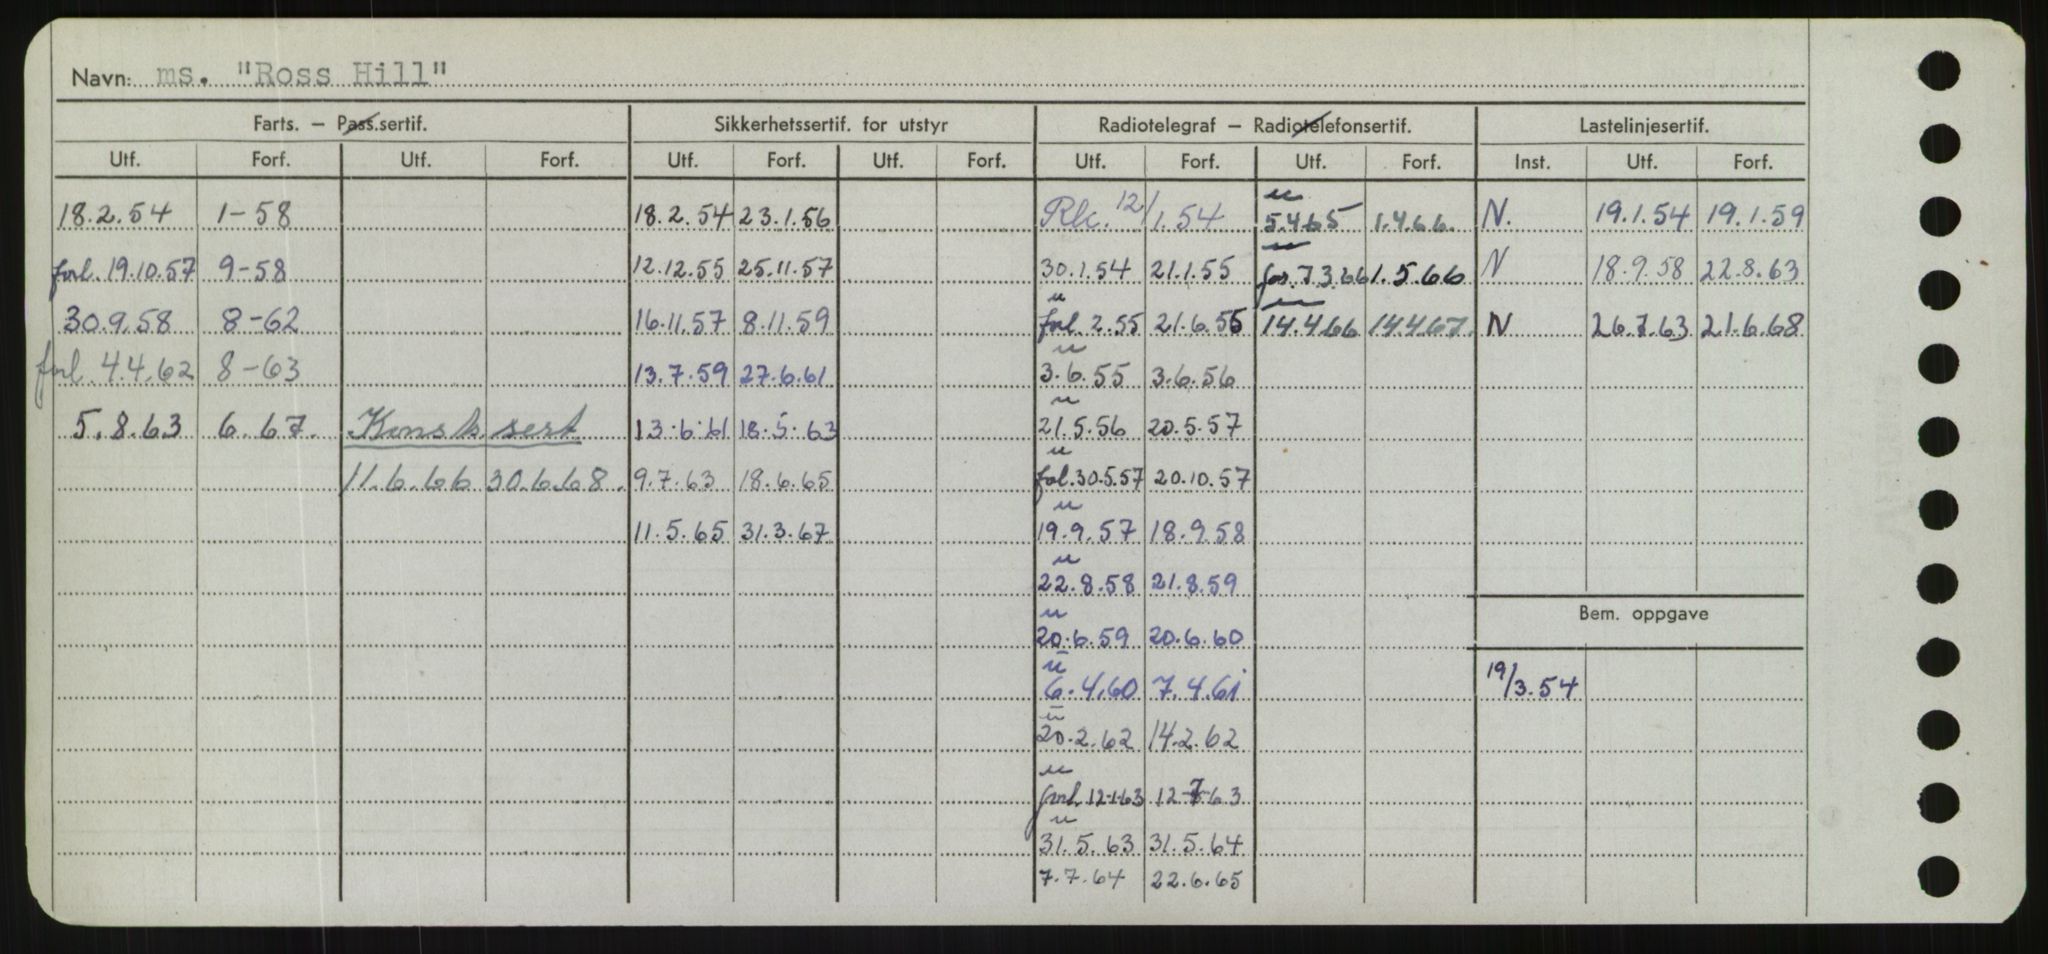 Navn: ms. "Ross Hill"
Farts. – Pass.sertif. Sikkerhetssertif. for utstyr Radiotelegraf – Radiotelefonsertif. Lastelinjesertif.
Utf. Forf. Utf. Forf. Utf. Forf. Utf. Forf. Utf. Forf. Utf. Forf. Inst. Utf. Forf.
18.2.54 1-58 18.2.54 23.1.56 Rk. 12/1.54 u 5.4.65 1.4.66. N. 19.1.54 19.1.59
forl. 19.10.57 9-58 12.12.55 25.11.57 30.1.54 21.1.55 u for. 7.3.66 1.5.66 N 18.9.58 22.8.63
30.9.58 8-62 16.11.57 8.11.59 u forl. 2.55 21.6.55 u 14.4.66 14.4.67. N 26.7.63 21.6.68
forl. 4.4.62 8-63 13.7.59 27.6.61 u 3.6.55 3.6.56
5.8.63 6.67. Konstr. sert 13.6.61 18.5.63 u 21.5.56 20.5.57
11.6.66 30.6.68. 9.7.63 18.6.65 u fol. 30.5.57 20.10.57
11.5.65 31.3.67 u 19.9.57 18.9.58
u 22.8.58 21.8.59
Bem. oppgave
u 20.6.59 20.6.60
u 6.4.60 7.4.61 19/3.54
u 20.2.62 14.2.62
u forl. 12-1-63 12-7-63
u 31.5.63 31.5.64
7.7.64 22.6.65